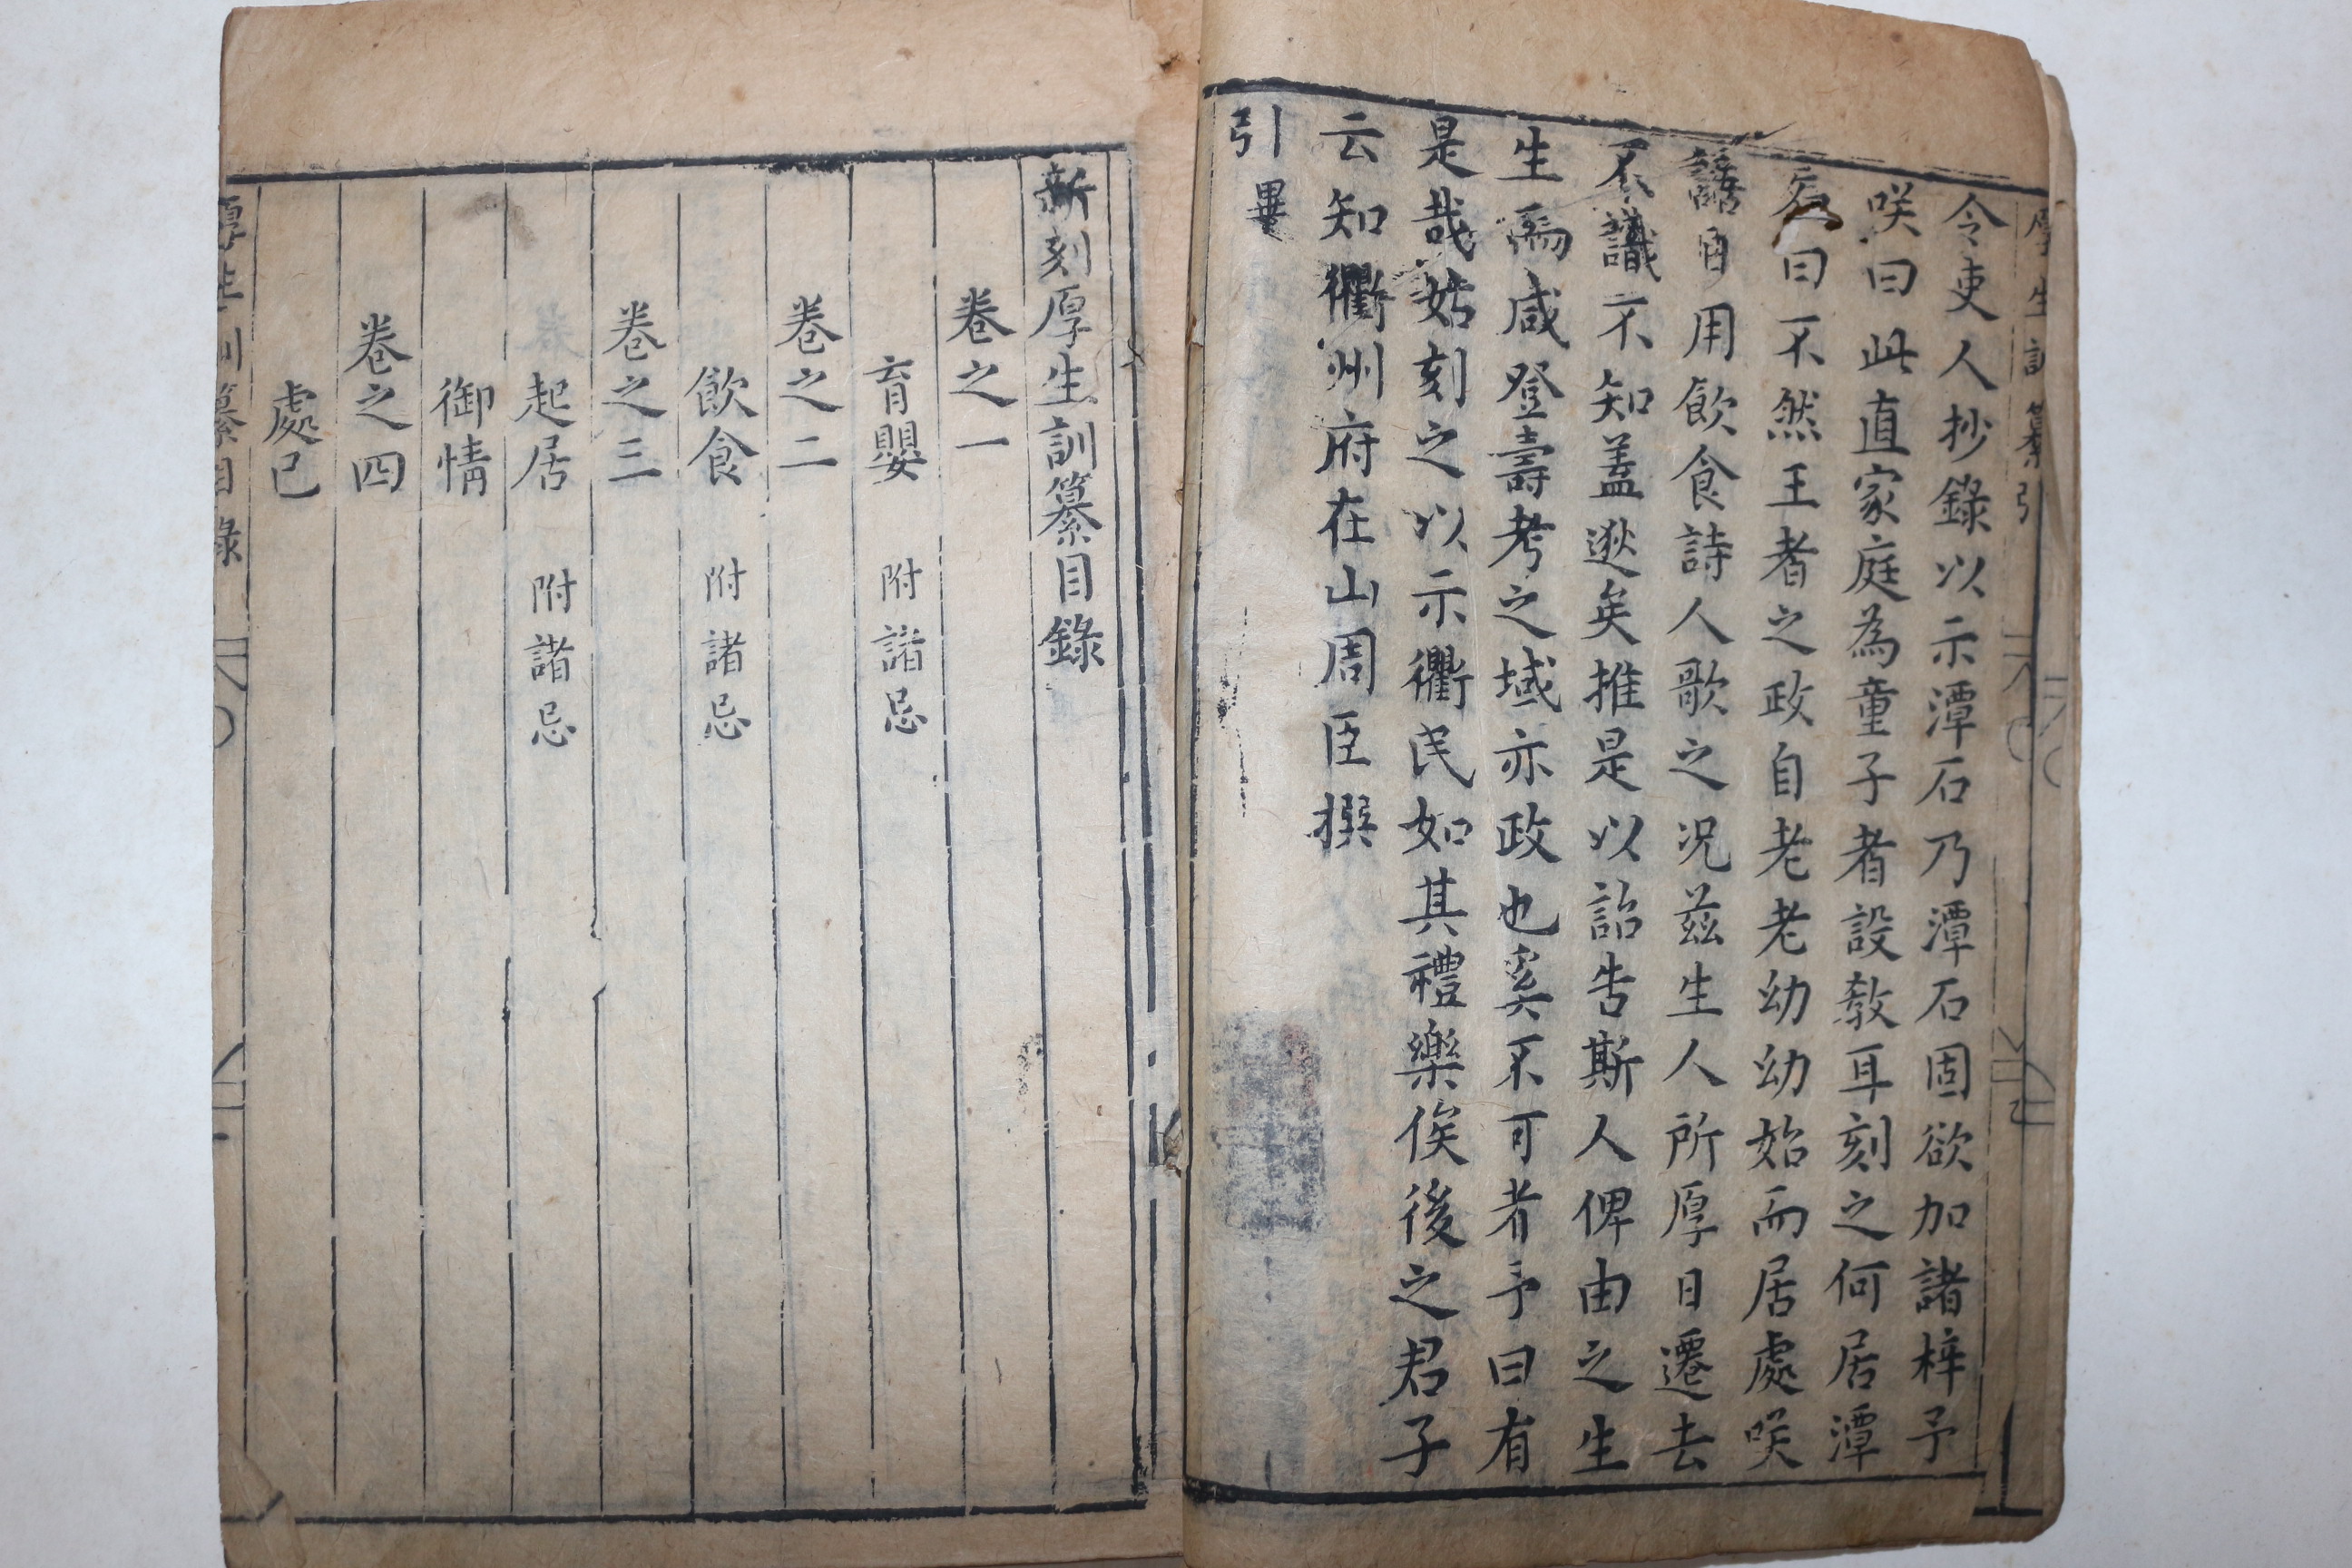 厚生訓纂引
令吏人抄錄以示潭石乃潭石固欲加諸梓予
咲曰此直家庭為童子者設教耳刻之何居潭
石曰不然王者之政自老老幼幼始而居處咲
語日用飲食詩人歌之况茲生人所厚日遷去
不識不知盖逖矣推是以詔告斯人俾由之生
生爲咸登壽考之域亦政也奚不可者予曰有
是哉姑刻之以示衢民如其禮樂俟後之君子
云知衢州府在山周臣撰
引畢
新刻厚生訓纂目錄
卷之一
育嬰 附諸忌
卷之二
飲食 附諸忌
卷之三
起居 附諸忌
御情
卷之四
處己
厚生訓纂目錄